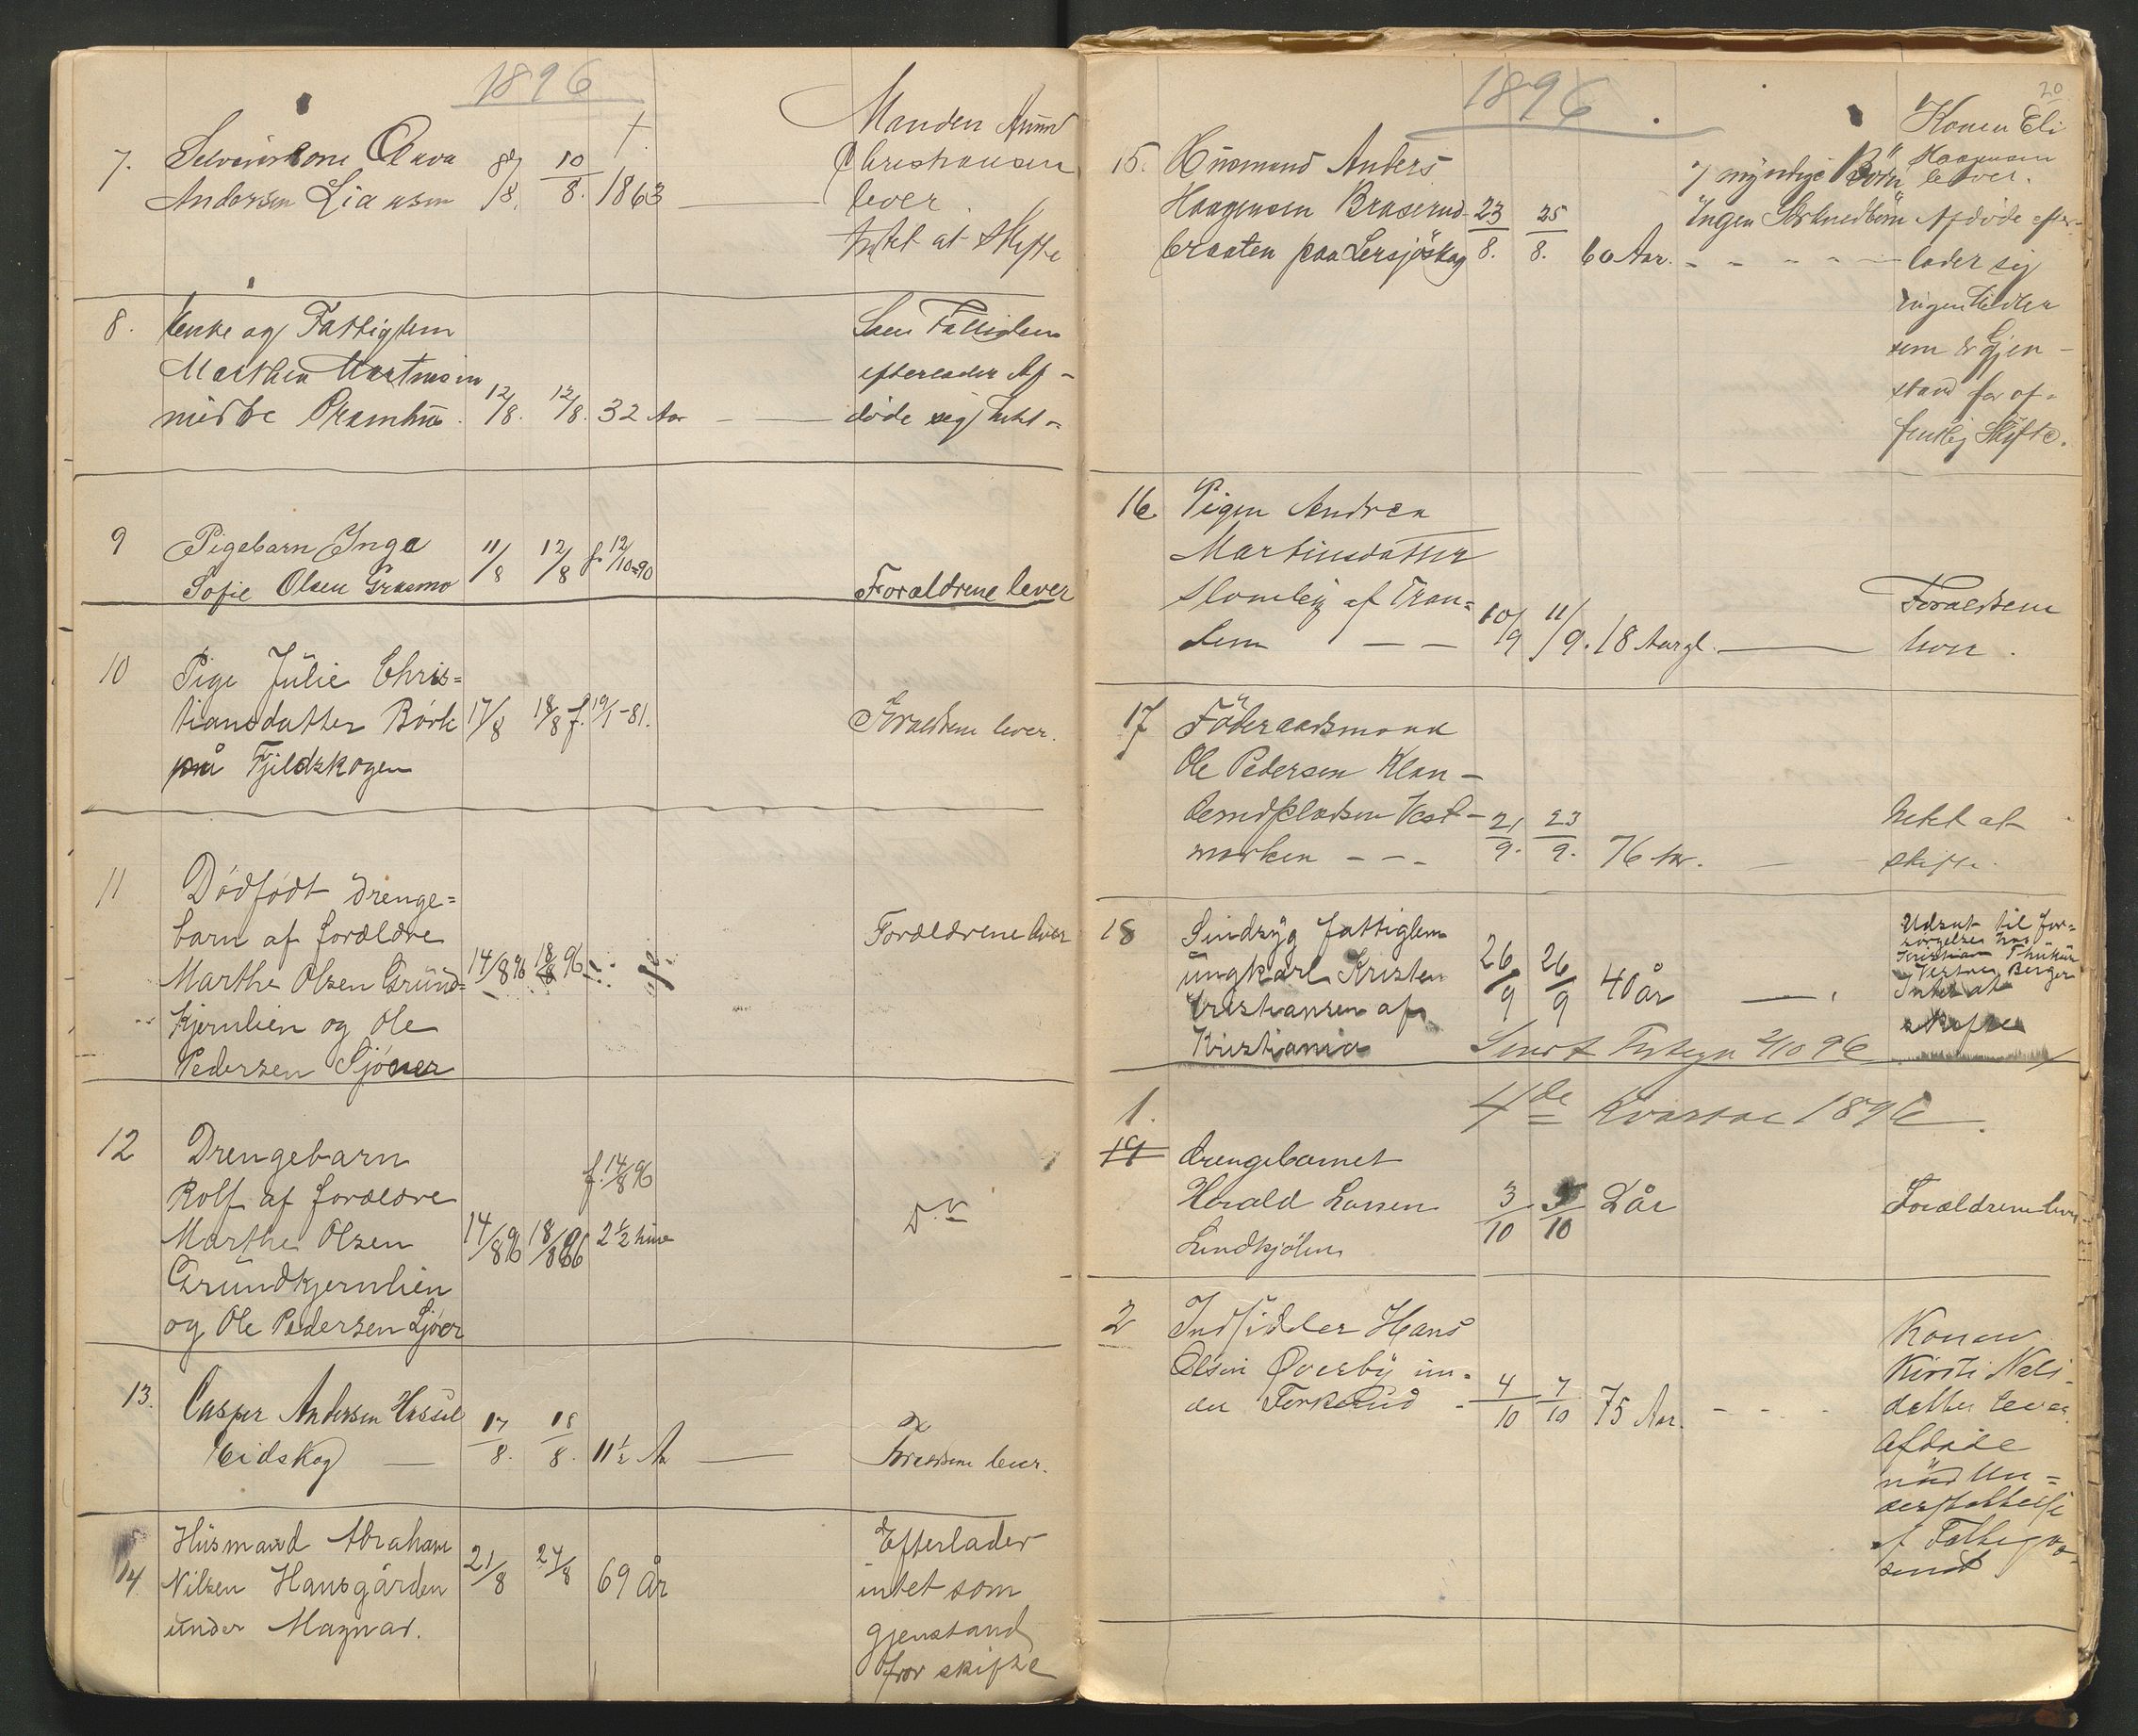 1896
7.
Olava
Andersen Liaasen
8/8
10/8.
f. 1863
Manden
Christiansen
lever
Intet at Skifte
8.
Enke og Fattiglem
Marthea
12/8.
12/8.
32 Aar
Som Fattiglem
efterlader Af-
døde sig Intet.
9
Pigebarn Inga
Sofie Olsen Grasmo
11/8
12/8
f. 12/10-90
Forældrene lever
10
Pige Julie Chris=
tiansdatter Børk
på Fjeldskogen
17/8
18/8
f. 19/1-81.
Forældrene lever.
11
Dødfødt drenge=
barn af forældre
Marthe Olsen Gründ=
kjernlien og Ole
Pedersen Sjöner
14/8 96
18/8 96
Forældrene lever
12
Drengebarn
Rolf af forældre
Marthe Olsen
Gründkjernlien
og Ole Pedersen
14/8 96
18/8 96
f. 14/8 96
2 1/2 time
D.
13.
Casper Andersen
Eidskog
17/8.
18/8.
11 1/2 A
Forældrene lever.
14.
Husmand Abraham
Nilsen Hansgården
under Magnar.
21/8
24/8
69 år
Efterlader
intet som
gjenstand
for skifte
1896
20
15.
Husmand Anders
Haagensen Braserud-
braaten paa Lersjöskog
23/8.
25/8.
60 Aar.
7 myndige Börn
Ingen Særkuldbörn
Konen Eli
Haagensen
lever.
Afdøde efter-
lader sig
ingen Midler
som er Gjen-
stand for of-
fentlig Skifte.
16.
Pigen Andrea
Martinsdatter
Slomby af Tran=
dem
10/9
11/9.
18 Aar gl.
Forældrene
lever.
17
Föderaadsmand
Ole Pedersen Klan-
derudpladsen Vest-
marken
21/9.
23/9.
76 Aar.
Intet at
skifte.
18
Sindsyg fattiglem
ungkarl Kristen
Kristiansen af
Kristiania
26/9
26/9
40 år
Udsat til for=
sørgelse hos
Kristian
Vestre Berger
Intet at
skifte
2/10 96
4de Kvartal 1896.
1.
19
Drengebarnet
Harald Larsen
Lundkjølen
3/10
5/10
2 år
Forældrene lever
2
Indsidder Hans
Olsen Øverby un-
der
4/10
7/10
75 Aar.
Konen
Kirsti Nels-
datter lever.
Afdøde
nöd Un=
derstöttelse
af Fattigvæ-
senet